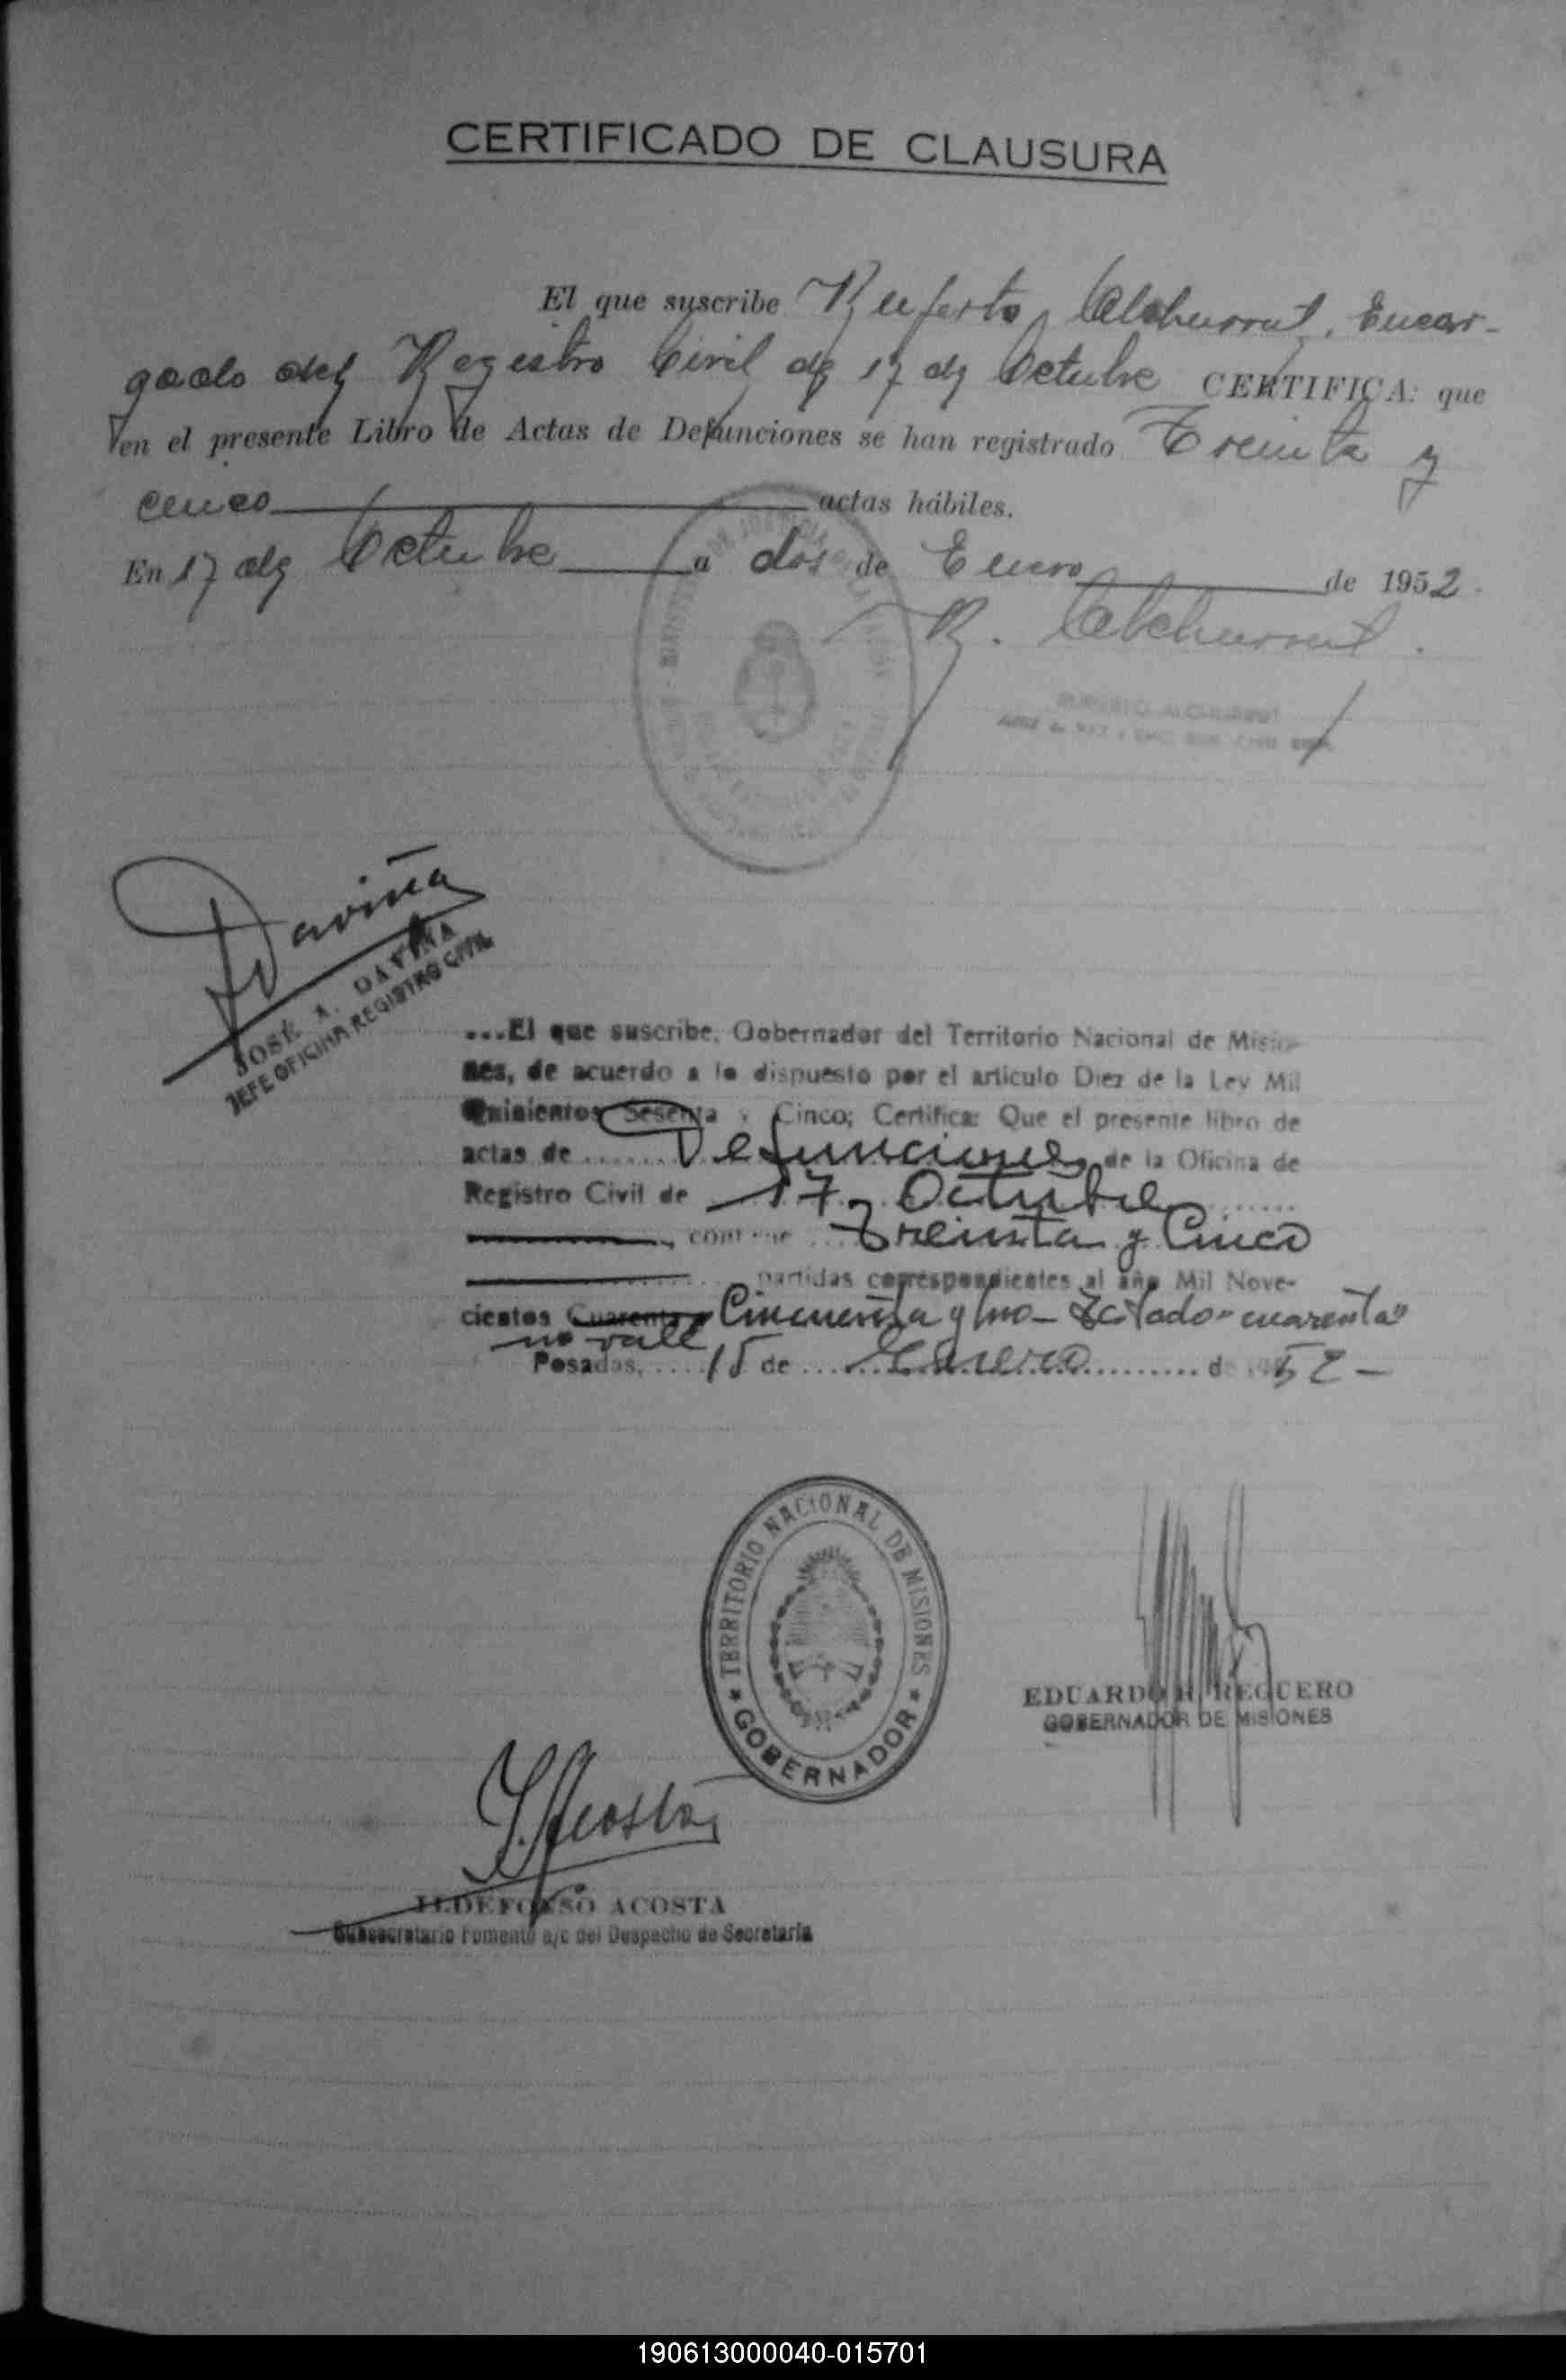 CERTIFICADO DE CLAUSURA
El que suscribe Ruferto Alchurrut, Encar-
gado del Registro Civil de 17 de Octubre CERTIFICA: que
en el presente Libro de Actas de Defunciones se han registrado Treinta y
cinco actas hábiles.
En 17 de Octubre a dos de Enero de 1952.
R. Alchurrut.
RUFERTO ALCHURRUT
Daviña
JOSÉ A. DAVIÑA
JEFE OFICINA REGISTRO CIVIL
...El que suscribe, Gobernador del Territorio Nacional de Misio-
nes, de acuerdo a lo dispuesto por el artículo Diez de la Ley Mil
Quinientos Sesenta y Cinco; Certifica: Que el presente libro de
actas de ...... Defunciones de la Oficina de
Registro Civil de 17 Octubre ......
contiene Treinta y Cinco
partidas correspondientes al año Mil Nove-
cientos Cuarenta y Cincuenta y Uno - Testado "cuarenta"
no vale
Posadas, .... 15 de .... Enero .......... de 1952 -
TERRITORIO NACIONAL DE MISIONES
GOBERNADOR
EDUARDO REGUERO
GOBERNADOR DE MISIONES
I. Acosta
ILDEFONSO ACOSTA
Subsecretario Fomento a/c del Despacho de Secretaría
190613000040-015701